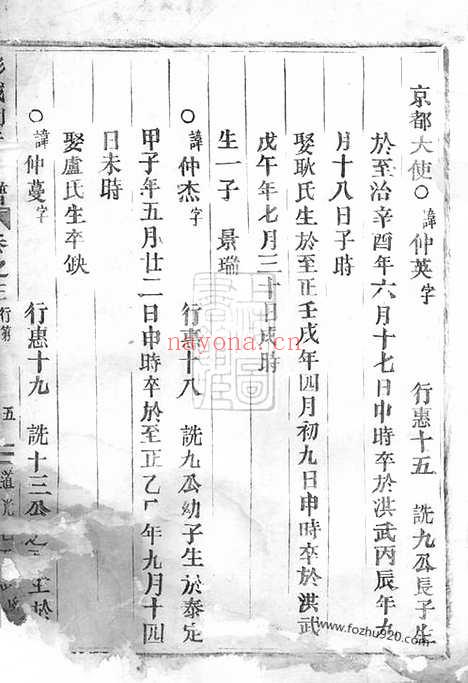 京都大使○諱仲英字 行惠十五 詵九公長子生
於至治辛酉年六月十七日申時卒於洪武丙辰年九
月十八日子時
娶耿氏生於至正壬戌年四月初九日申時卒於洪武
戊午年七月三十日戌時
生一子 景瑞
○諱仲杰字 行惠十八 詵九公幼子生於泰定
甲子年五月廿二日申時卒於至正乙 年九月十四
日未時
娶盧氏生卒缺
○諱仲蔓字 行惠十九 詵十三公 生於
譜 卷之三 行第 五 道光
nayona.cn
www.fozhu920.com